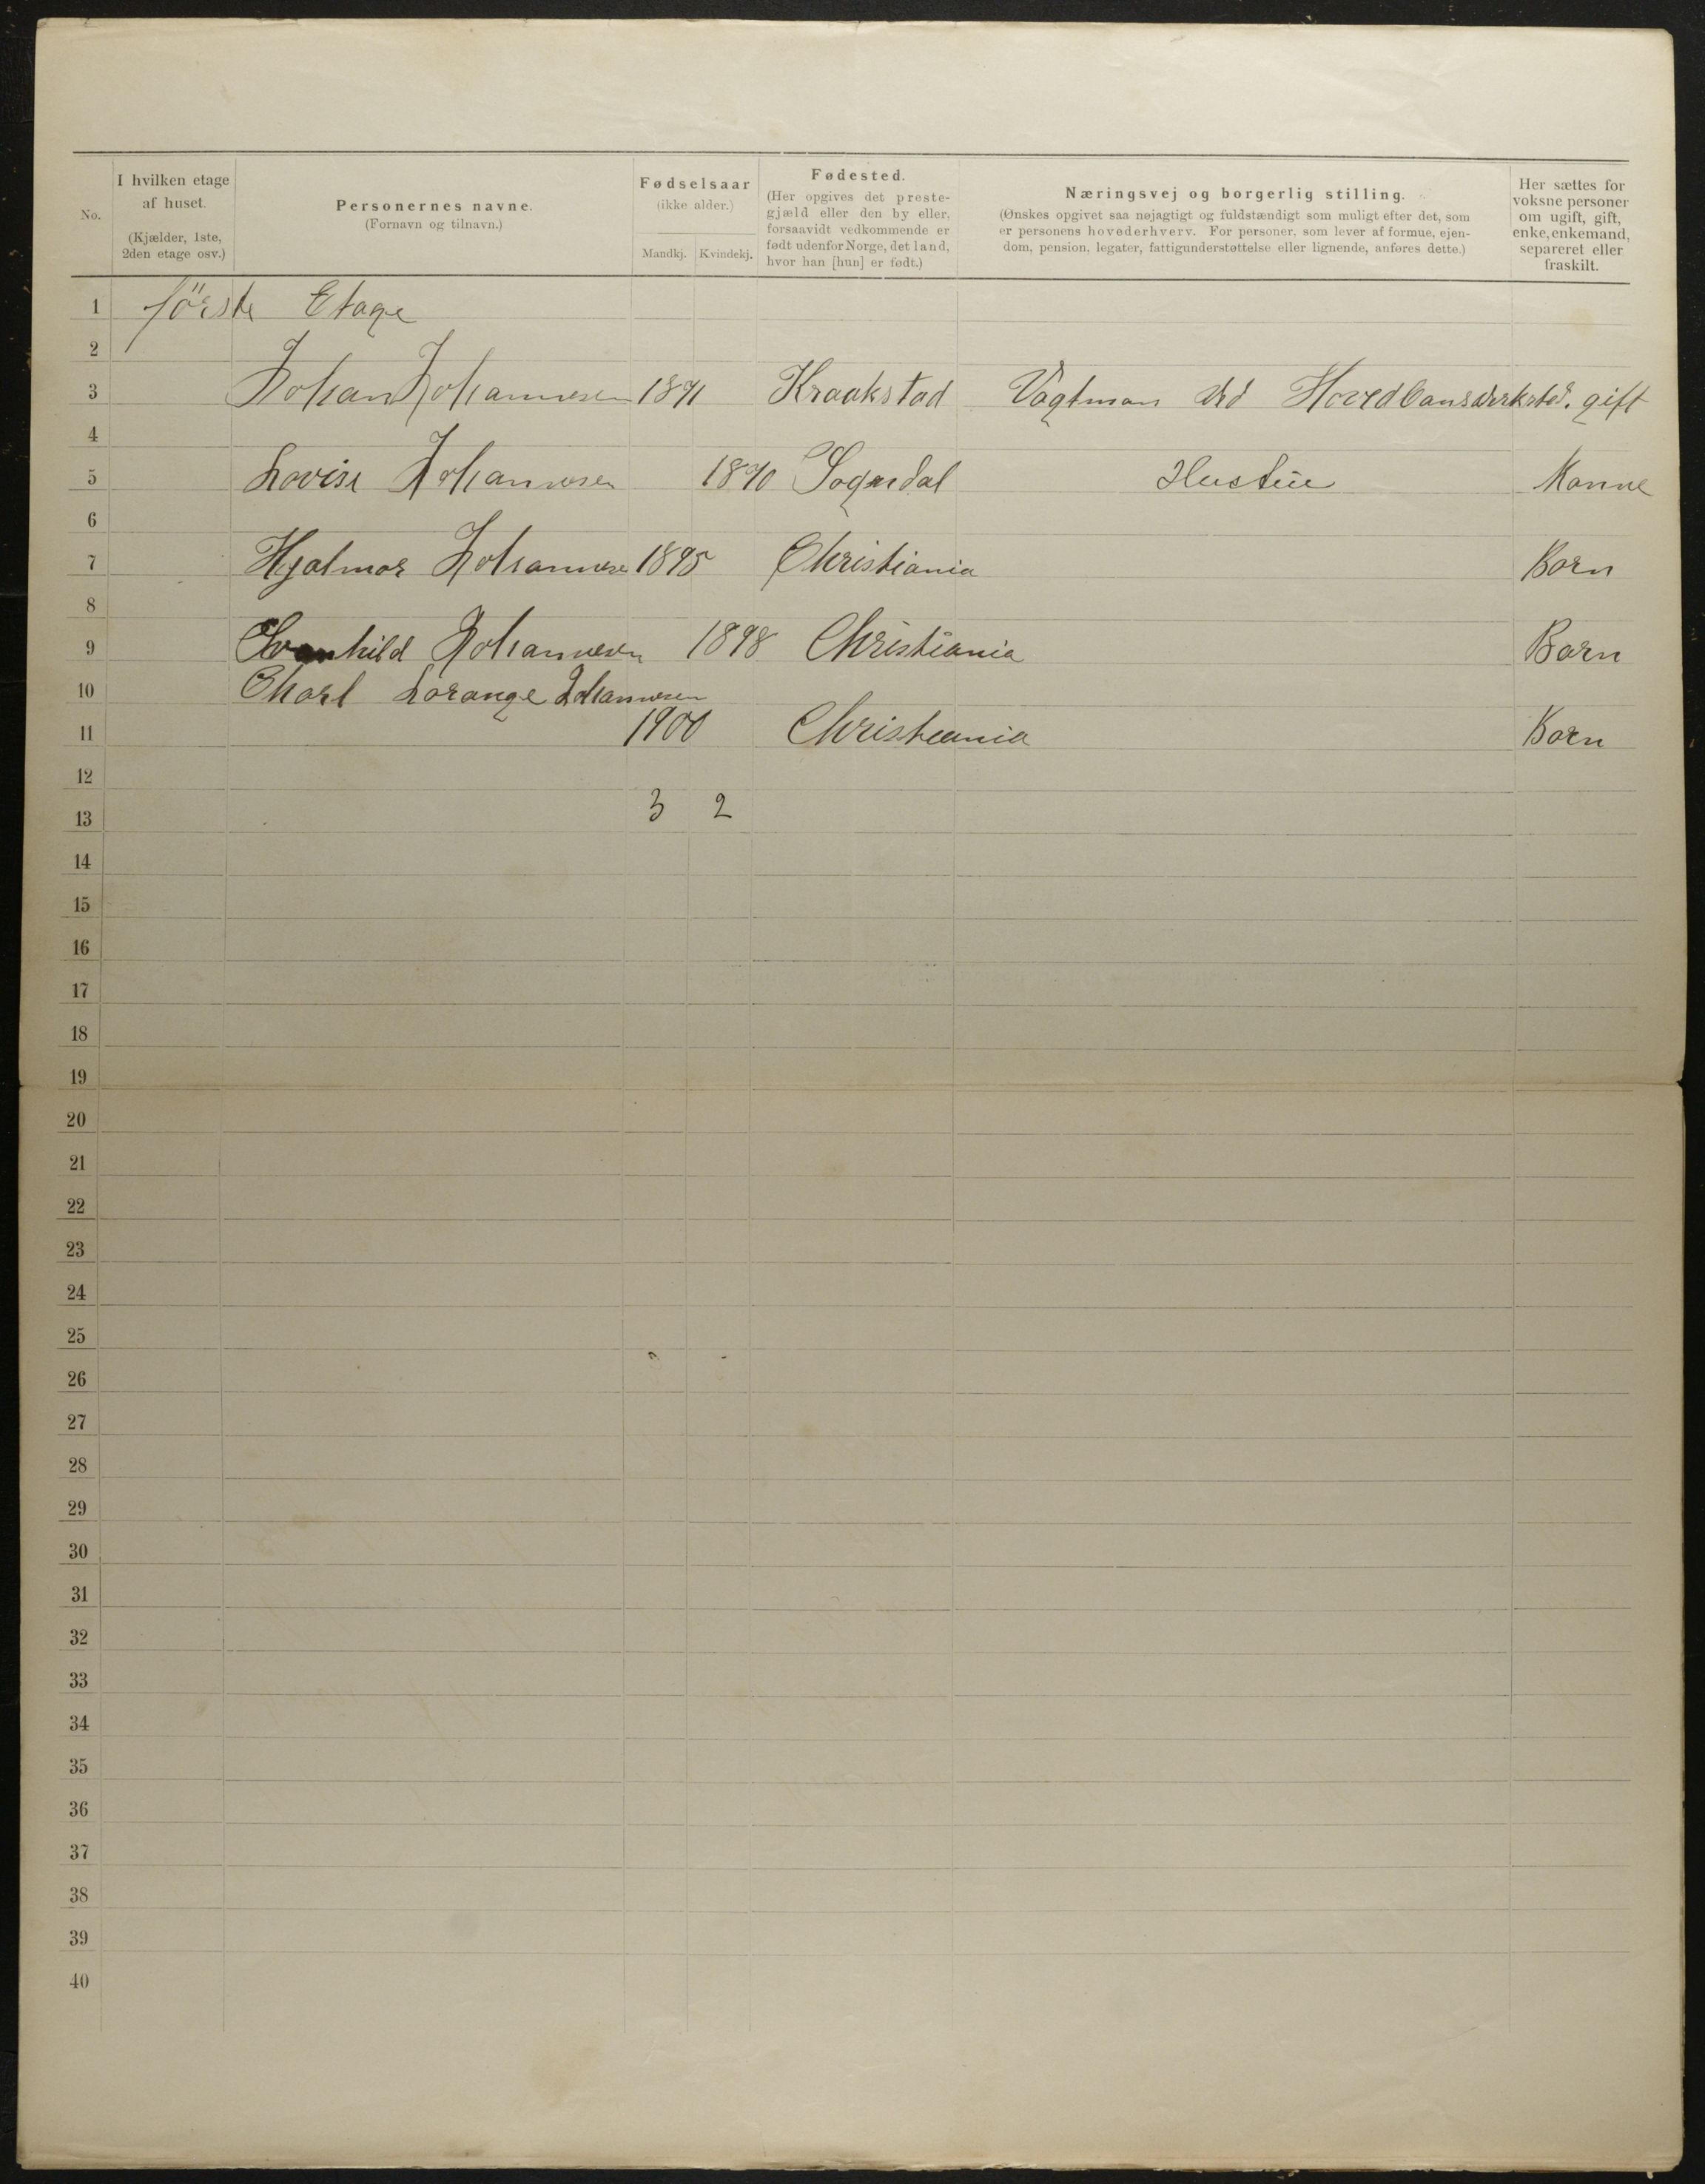 No.
I hvilken etage
af huset.
(Kjælder, 1ste,
2den etage osv.)
Personernes navne.
(Fornavn og tilnavn.)
Fødselsaar
(ikke alder.)
Mandkj. Kvindekj.
Fødested.
(Her opgives det preste-
gjæld eller den by eller,
forsaavidt vedkommende er
født udenfor Norge, det land,
hvor han [hun] er født.)
Næringsvej og borgerlig stilling.
(Ønskes opgivet saa nøjagtigt og fuldstændigt som muligt efter det, som
er personens hovederhverv. For personer, som lever af formue, ejen-
dom, pension, legater, fattigunderstøttelse eller lignende, anføres dette.)
Her sættes for
voksne personer
om ugift, gift,
enke, enkemand,
separeret eller
fraskilt.
1 förste Etage
2
3 Johan Johannesen 1871 Kraakstad Vagtman ved Hovedbansverksted. gift
4
5 Lovise Johannesen 1870 Sogndal Hustru
6
7 Hjalmar Johannesen 1895 Christiania Barn
8
9 Johannesen 1898 Christiania Barn
10 Charl Lorange Johannesen
11 1900 Christiania Barn
12
13 3 2
14
15
16
17
18
19
20
21
22
23
24
25
26
27
28
29
30
31
32
33
34
35
36
37
38
39
40